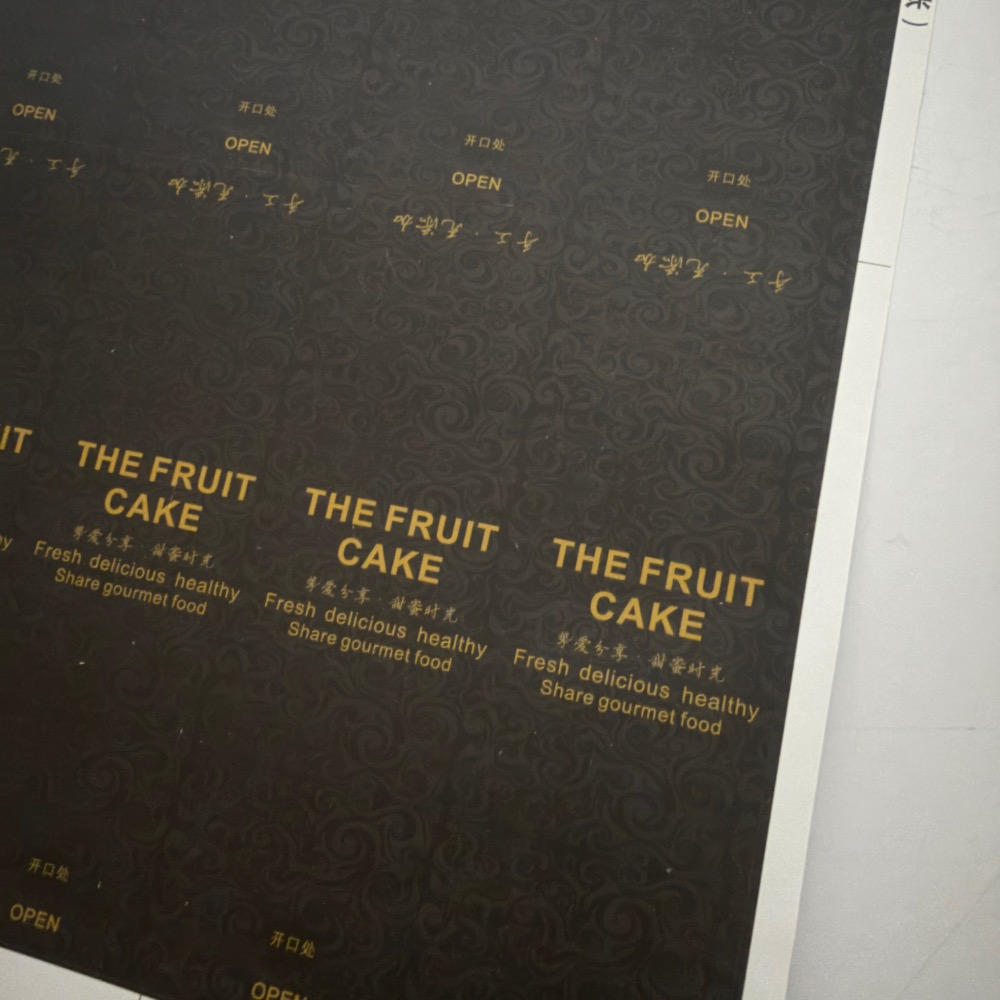 开口处
OPEN
手工 · 无
开口处
OPEN
手工 · 无添加
开口处
OPEN
手工 · 无添加
开口处
OPEN
手工 · 无添加
IT
hy
THE FRUIT
CAKE
挚爱分享 · 甜蜜时光
Fresh delicious healthy
Share gourmet food
THE FRUIT
CAKE
挚爱分享 · 甜蜜时光
Fresh delicious healthy
Share gourmet food
THE FRUIT
CAKE
挚爱分享 · 甜蜜时光
Fresh delicious healthy
Share gourmet food
开口处
OPEN
开口处
OPEN